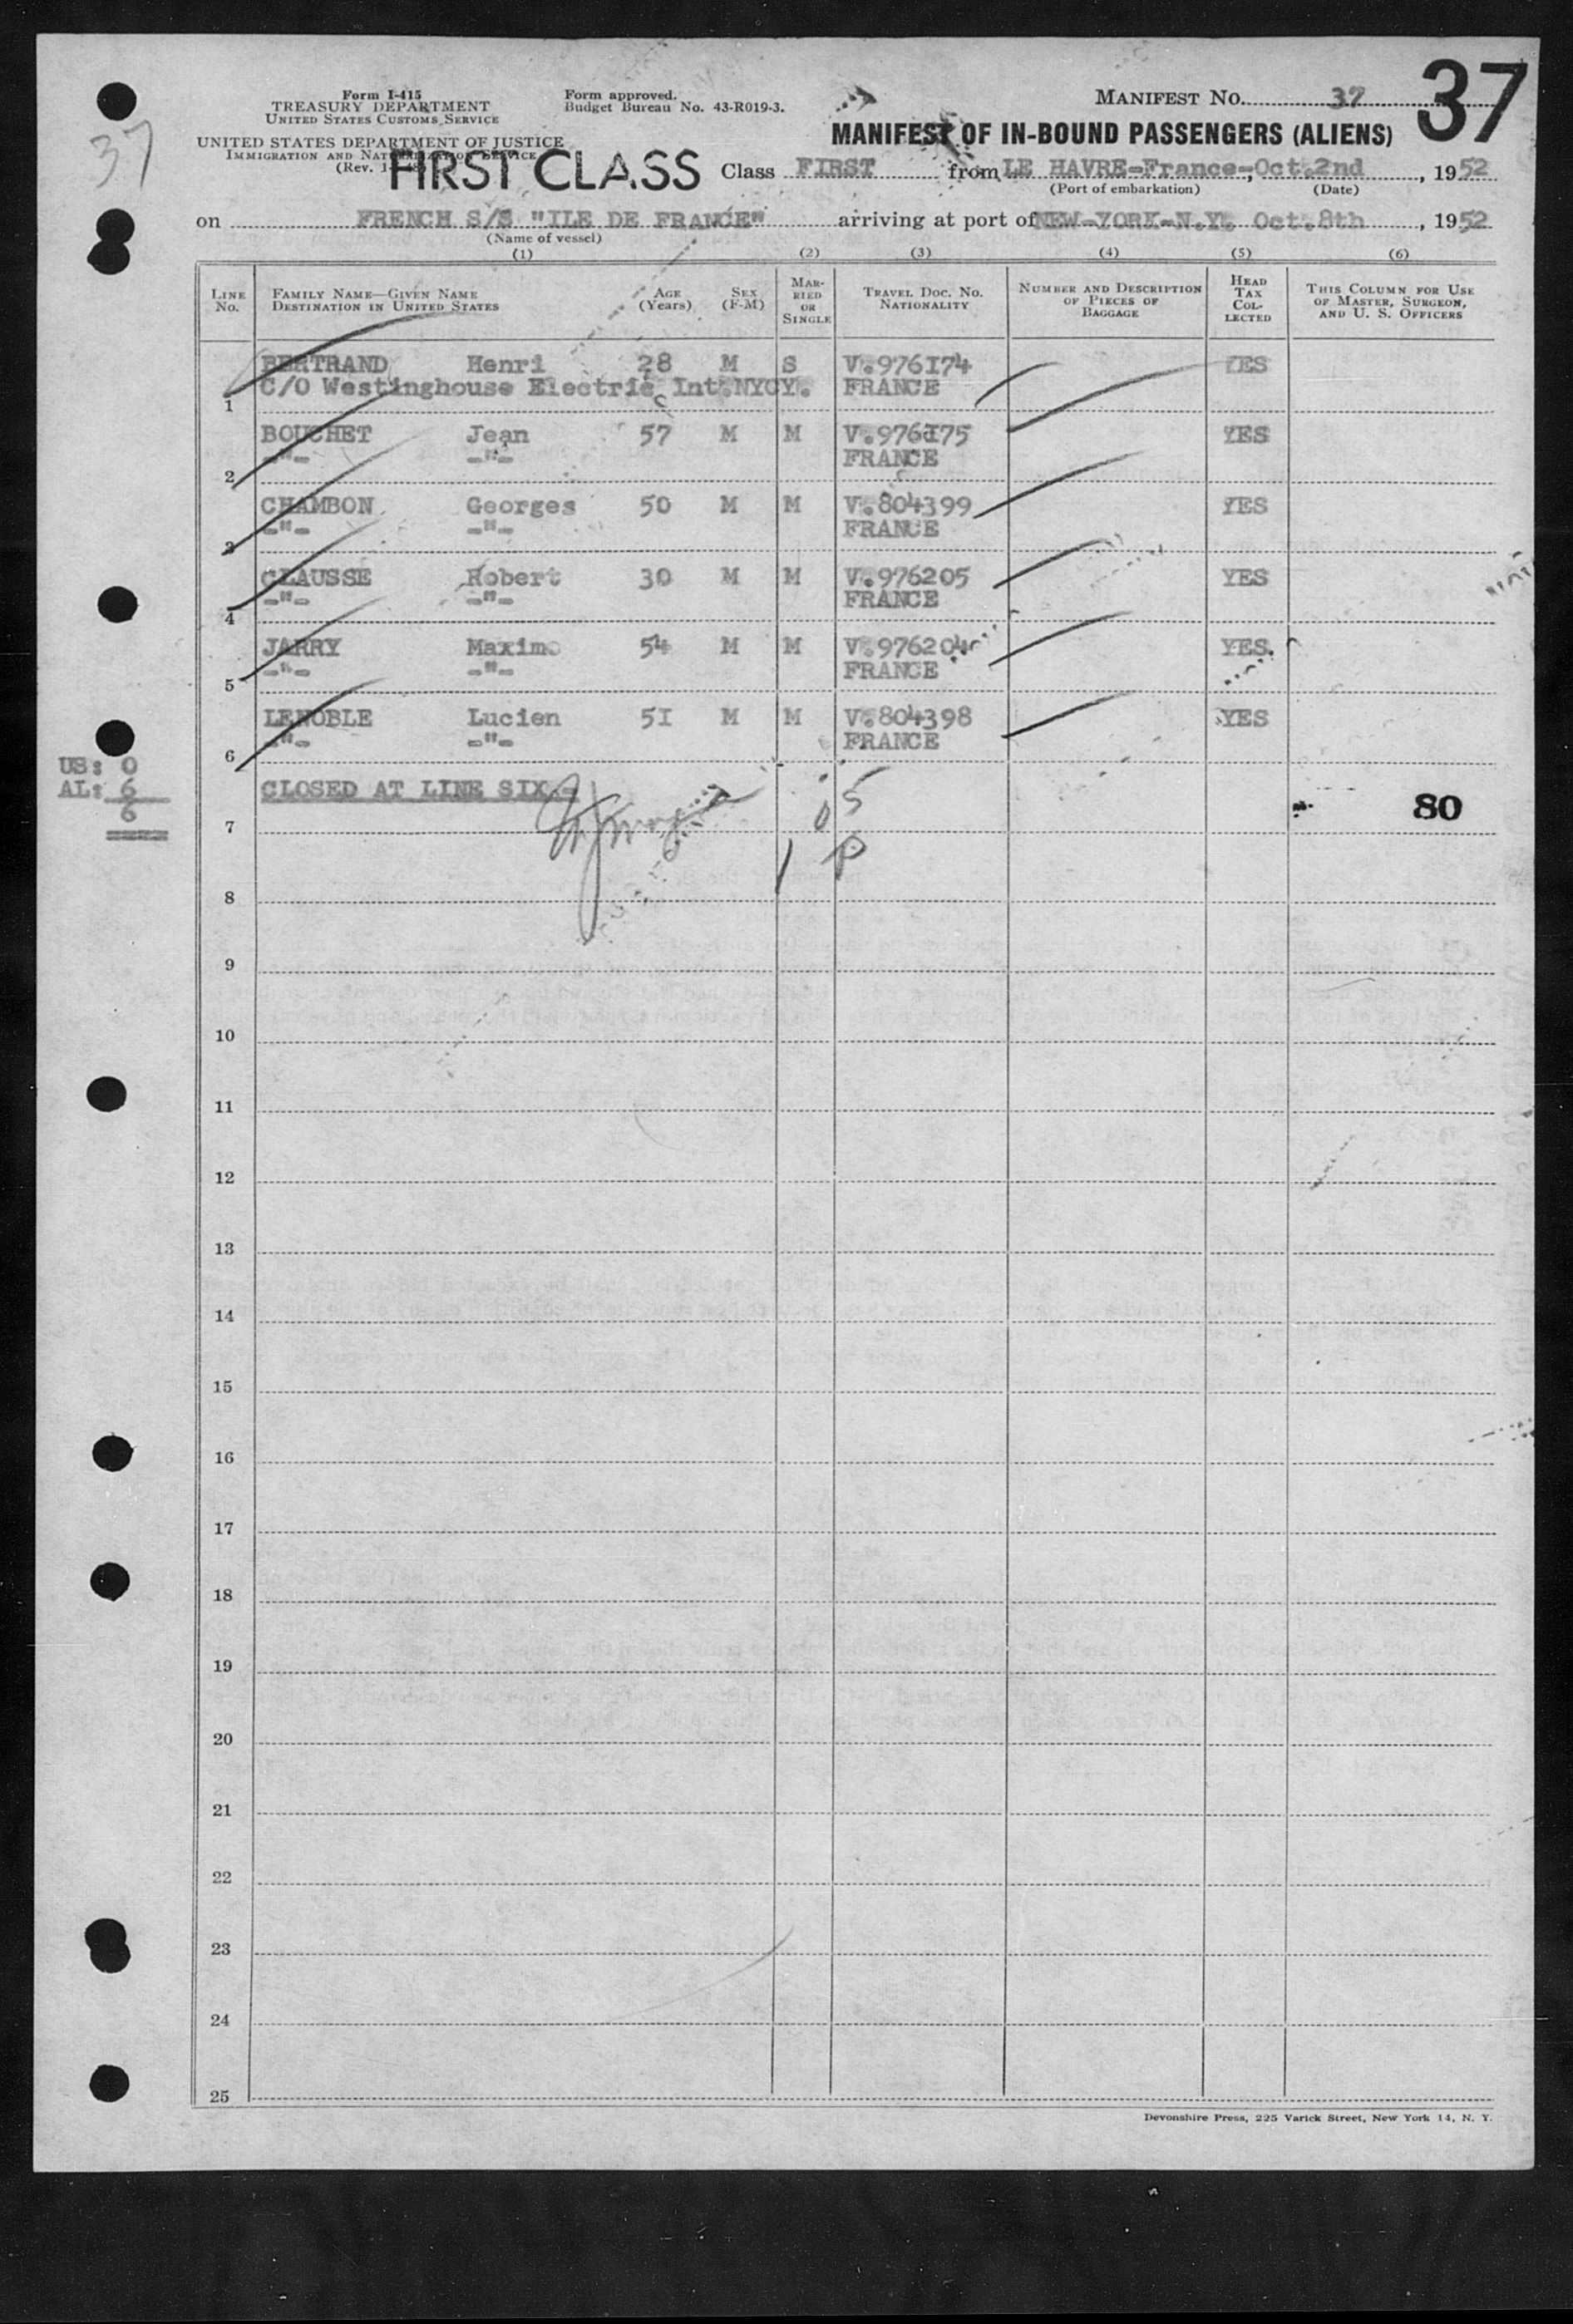 37
Form I-415
TREASURY DEPARTMENT
UNITED STATES CUSTOMS SERVICE
Form approved.
Budget Bureau No. 43-R019-3.
MANIFEST NO. 37
37
UNITED STATES DEPARTMENT OF JUSTICE
IMMIGRATION AND NATURALIZATION SERVICE
(Rev.
MANIFEST OF IN-BOUND PASSENGERS (ALIENS)
FIRST CLASS Class FIRST from LE HAVRE-France-, Oct.2nd, 1952
(Port of embarkation) (Date)
on FRENCH S/S "ILE DE FRANCE" arriving at port of NEW-YORK-N.Y. Oct.8th, 1952
(Name of vessel)
(1) (2) (3) (4) (5) (6)
LINE No. FAMILY NAME—GIVEN NAME DESTINATION IN UNITED STATES AGE (Years) SEX (F-M) MARRIED OR SINGLE TRAVEL DOC. NO. NATIONALITY NUMBER AND DESCRIPTION OF PIECES OF BAGGAGE HEAD TAX COLLECTED THIS COLUMN FOR USE OF MASTER, SURGEON, AND U. S. OFFICERS
BERTRAND Henri 28 M S V.976I74 YES
1 C/O Westinghouse Electric Int.NYCY. FRANCE
BOUCHET Jean 57 M M V.976I75 YES
2 -"- -"- FRANCE
CHAMBON Georges 50 M M V.804399 YES
3 -"- -"- FRANCE
CLAUSSE Robert 30 M M V.976205 YES
4 -"- -"- FRANCE
JARRY Maxime 54 M M V.976204 YES
5 -"- -"- FRANCE
LENOBLE Lucien 5I M M V.804398 YES
6 -"- -"- FRANCE
US: 0
AL: 6
6
CLOSED AT LINE SIX.-
80
7
8
9
10
11
12
13
14
15
16
17
18
19
20
21
22
23
24
25
Devonshire Press, 225 Varick Street, New York 14, N. Y.